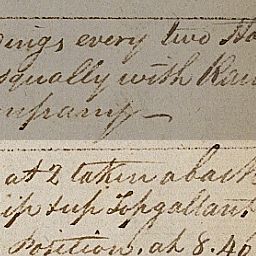 dings every two Ho
squally with Rain
company
at 2 taken aback
up Topgallant
Position, at 8.40